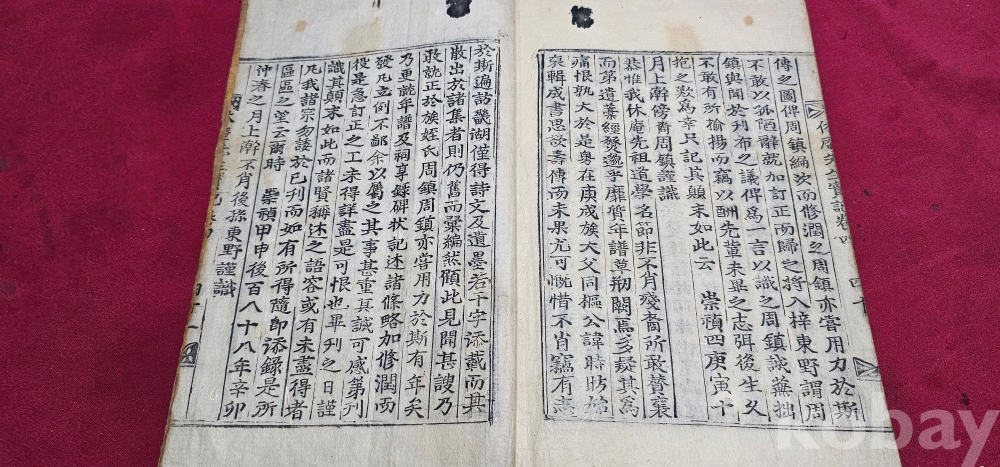 傳之圖俾周鎮編次而修潤之周鎮亦嘗用力於斯
不敢以孤陋辭就加訂正而歸之將入梓東野謂周
鎮與聞於刋布之議俾爲一言以識之周鎮識蕪拙
不敢有所揄揚而竊以酬先輩未畢之志弭後生久
抱之歎爲幸只記其顛末如此云 崇禎四庚寅十
月上澣傍裔周鎮謹識
恭惟我休庵先祖道學名節非不肖殘裔所敢替襄
而第遺藁經燹遷乎靡質年譜草刱闕焉多疑其爲
痛恨孰大於是粤在庚戍族大父同樞公諱時昉始
裒輯成書思欲壽傳而未果尤可慨惜不肖竊有志
於斯遍訪畿湖僅得詩文及遺墨若干字添載而其
散出於諸集者則仍舊而彙編然顧此見聞甚謏乃
敢就正於族姪氏周鎮周鎮亦嘗用力於斯有年矣
乃更就年譜及祠享錄碑狀記述諸條略加修潤而
發凡立例不鄙余以屬之其事甚重其誠可感第刋
役是急訂正之工未得詳盡是可恨也畢刋之日謹
識其顛末如此而諸賢稱述之語容或有未盡得者
凡我諸宗勿諉於已刋而如有所得隨即添錄是所
區區之望云爾時 崇禎甲申後百八十八年辛卯
仲春之月上澣不肖後孫東野謹識
休庵先生實記卷四 四十
kobay